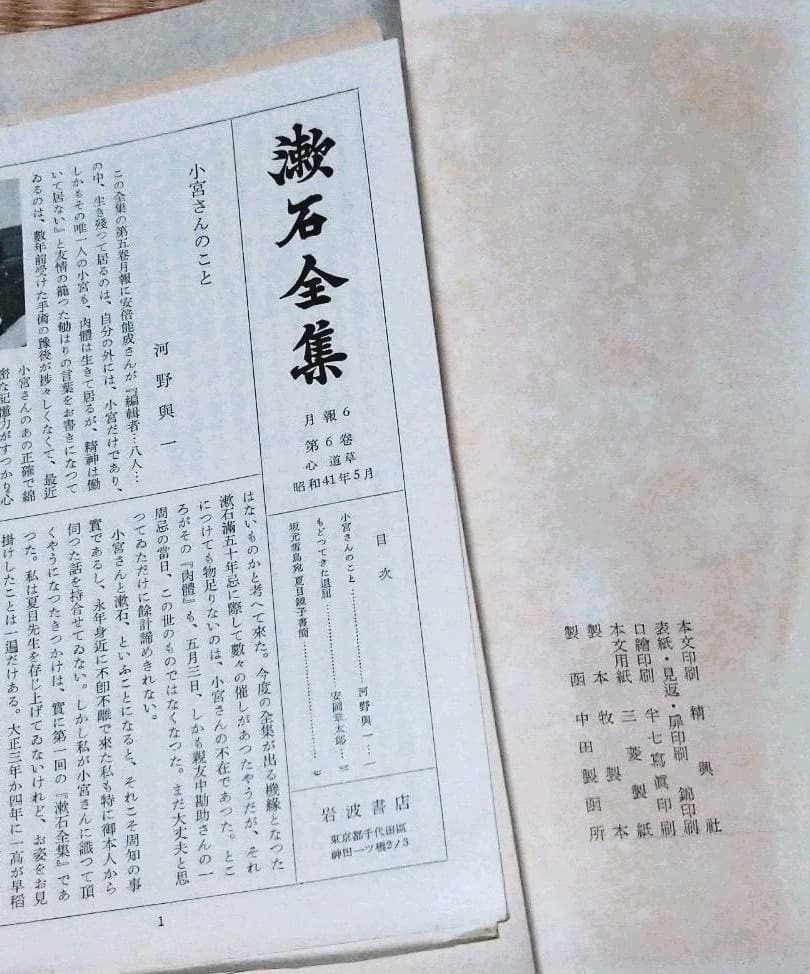 漱石全集
月報6
第6卷
心 道草
昭和41年5月
目次
小宮さんのこと……河野與一…一
もどつてきた退屈……安岡章太郎…
坂元雪鳥宛 夏目鏡子書簡……
岩波書店
東京都千代田區
神田一ツ橋2ノ3
小宮さんのこと
河野與一
この全集の第五卷月報に安倍能成さんが『編輯者…八人…
の中、生き殘つて居るのは、自分の外には、小宮だけであり、
しかもその唯一人の小宮も、肉體は生きて居るが、精神は働
いて居ない』と友情の籠つた勉はりの言葉をお書きになつて
ゐるのは、數年前受けた手術の豫後が捗々しくなくて、最近
小宮さんのあの正確で綿
密な記憶力がすつかり心
はないものかと考へて來た。今度の全集が出る機緣となつた
漱石滿五十年忌に際して數々の催しがあつたやうだが、それ
につけても物足りないのは、小宮さんの不在であつた。とこ
ろがその『肉體』も、五月三日、しかも親友中勘助さんの一
周忌の當日、この世のものではなくなつた。まだ大丈夫と思
つてゐただけに餘計諦めきれない。
小宮さんと漱石、といふことになると、それこそ周知の事
實であるし、永年身近に不卽不離で來た私も特に御本人から
伺つた話を持合せてゐない。しかし私が小宮さんに識つて頂
くやうになつたきつかけは、實に第一回の『漱石全集』であ
つた。私は夏目先生を存じ上げてゐないけれど、お姿をお見
掛けしたことは一遍だけある。大正三年か四年に一高が早稻
1
本文印刷 精興社
表紙・見返・扉印刷 錦印刷
口繪印刷 半七寫眞印刷
本文用紙 三菱製紙
製本 牧製本
製函 中田製函所